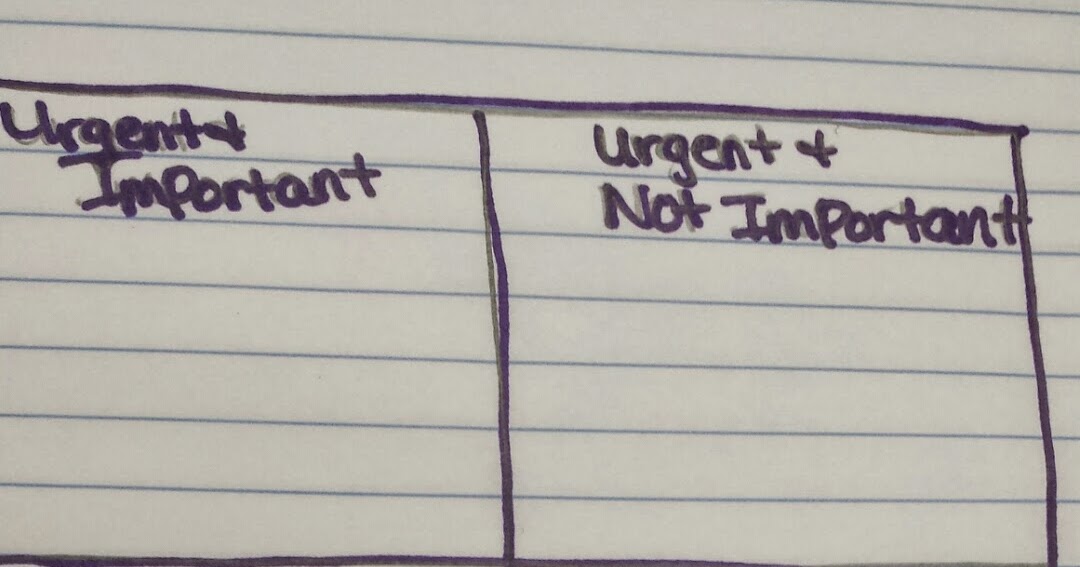 Urgent +
Important
Urgent +
Not Important